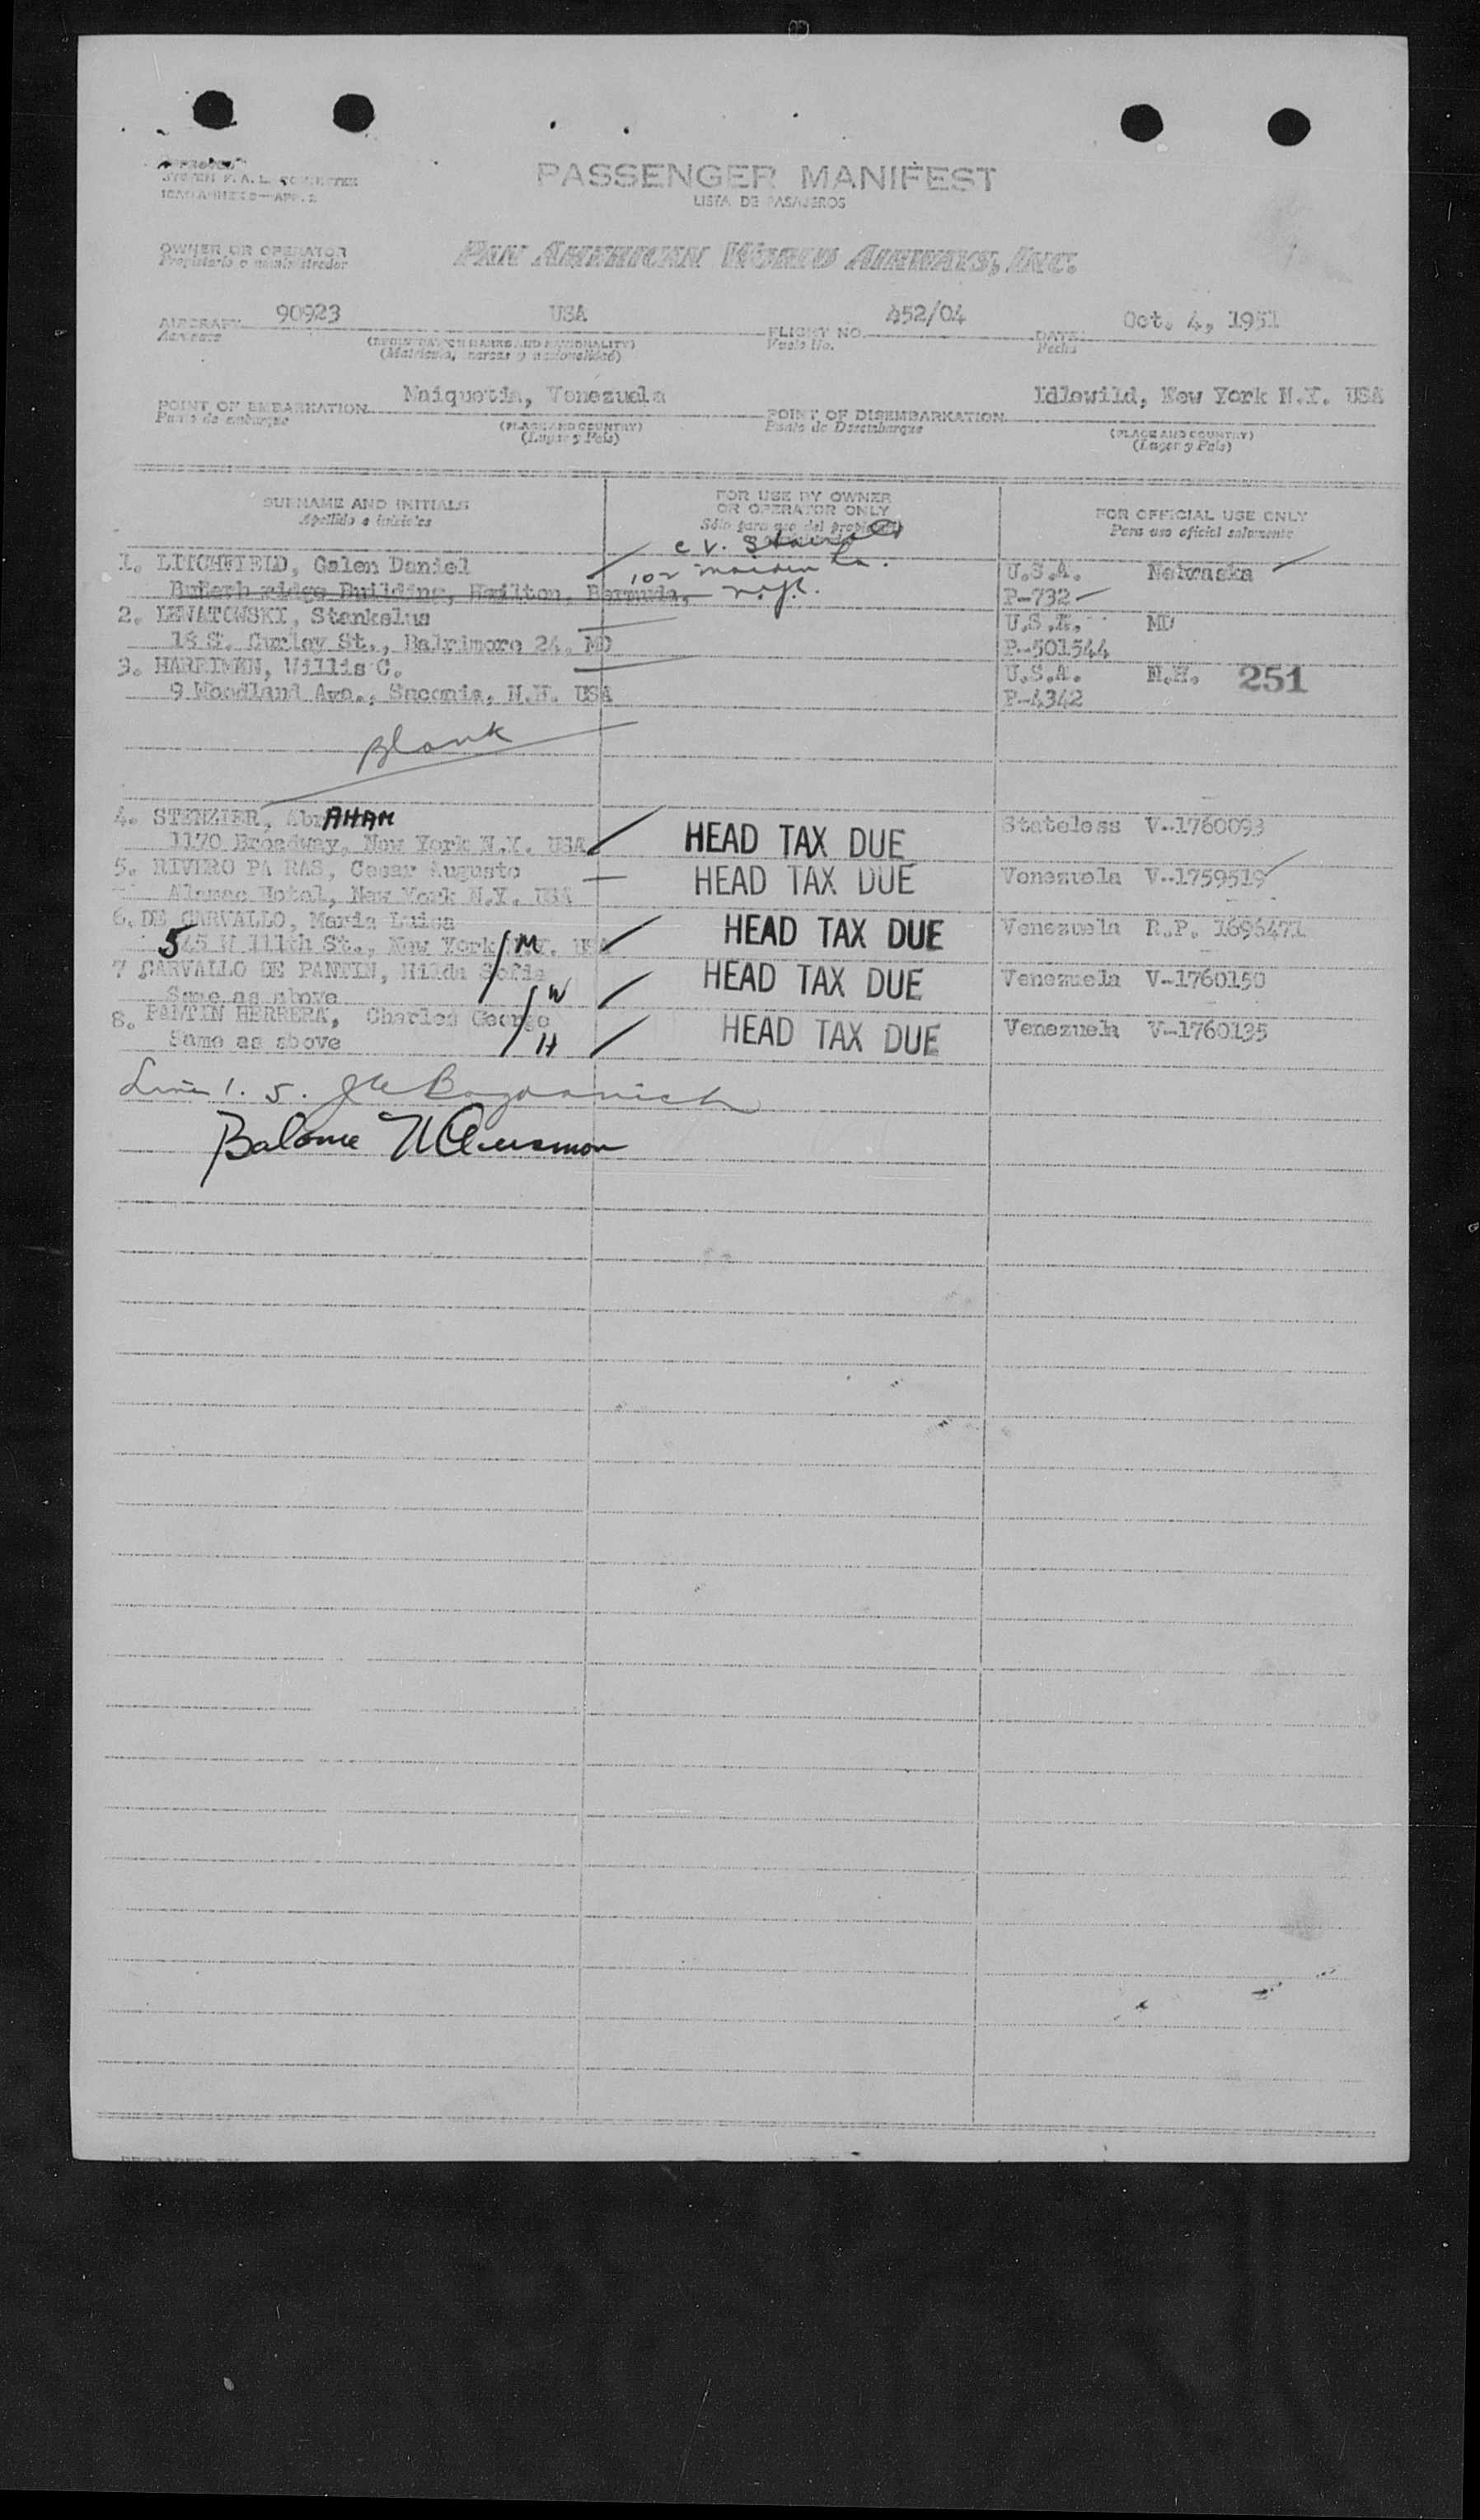 PASSENGER MANIFEST
LISTA DE PASAJEROS
OWNER OR OPERATOR
Propietario o administrador
PAN AMERICAN WORLD AIRWAYS, INC.
AIRCRAFT 90923 USA FLIGHT NO. 452/04 DATE Oct. 4, 1951
Aeronave (REGISTRATION MARKS AND NATIONALITY) Vuelo No. Fecha
(Matricula, marcas y nacionalidad)
POINT OF EMBARKATION Maiquetia, Venezuela POINT OF DISEMBARKATION Idlewild, New York N.Y. USA
Punto de embarque (PLACE AND COUNTRY) Punto de Desembarque (PLACE AND COUNTRY)
(Lugar y Pais) (Lugar y Pais)
SURNAME AND INITIALS FOR USE BY OWNER OR OPERATOR ONLY FOR OFFICIAL USE ONLY
Apellido e iniciales Sólo para uso del Para uso oficial solamente
C V.
1. LITCHFIELD, Galen Daniel 102 maiden La. U.S.A. Nebraska
Building, Hamilton, Bermuda, n.y. P-732
2. LEWATOWSKI, Stankslus U.S.A. MD
18 S. Curley St., Baltimore 24, MD P-501544
3. HARRIMAN, Willis C. U.S.A. N.H. 251
9 Woodland Ave., Saconia, N.H. USA P-4342
Blank
4. STENZIER, AbrAHAM HEAD TAX DUE Stateless V-1760093
1170 Broadway, New York N.Y. USA
5. RIVERO PA RAS, Cesar Augusto HEAD TAX DUE Venezuela V-1759519
Alamac Hotel, New York N.Y. USA
6. DE CARVALLO, Maria Luisa HEAD TAX DUE Venezuela R.P. 1696471
545 W 111th St., New York N.Y. USA M
7 CARVALLO DE PANTIN, Hilda Sofia HEAD TAX DUE Venezuela V-1760150
Same as above W
8. PANTIN HERRERA, Charles George HEAD TAX DUE Venezuela V-1760135
Same as above H
Line 1. 5.
Balance